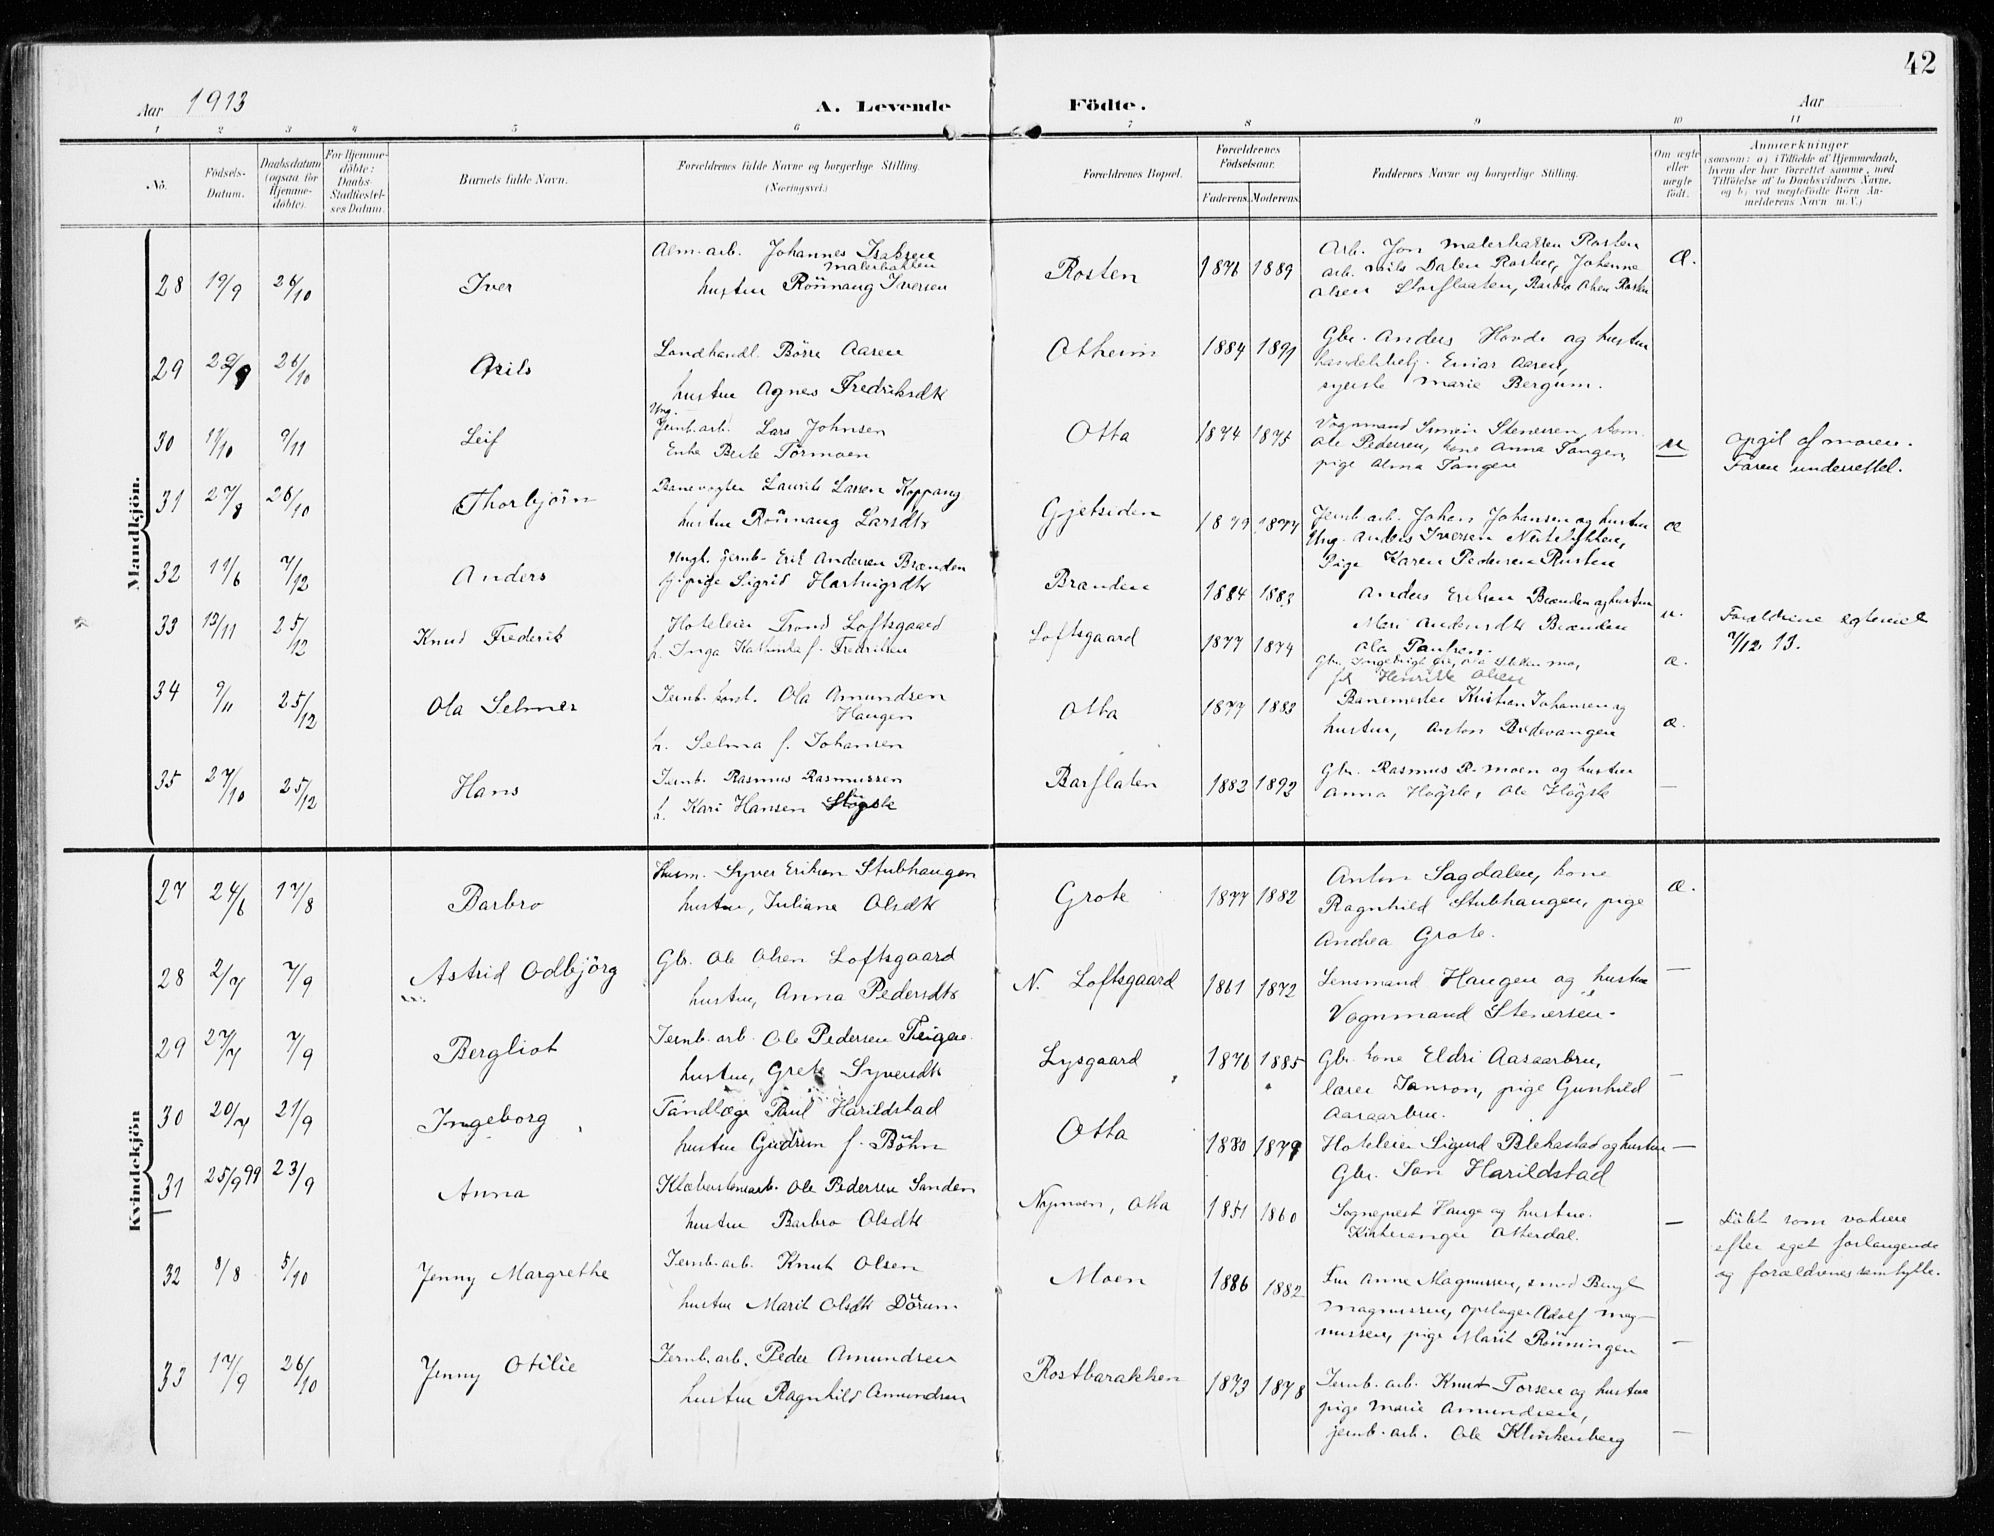 42
Aar 1913 A. Levende Födte. Aar
1 2 3 4 5 6 7 8 9 10 11
No. Födsels-Datum. Daabsdatum (ogsaa for Hjemmedöbte). For Hjemmedöbte: Daabs-Stadfæstelses Datum. Barnets fulde Navn. Forældrenes fulde Navne og borgerlige Stilling. (Næringsvei.) Forældrenes Bopæl. Forældrenes Födselsaar. Faderens. Moderens. Faddernes Navne og borgerlige Stilling. Om ægte eller uægte födt. Anmærkninger (saasom: a) i Tilfælde af Hjemmedaab, hvem der har forrettet samme, med Tilföielse af to Daabsvidners Navne, og b) ved uægtefödte Börn Anmelderens Navn m. V.)
Mandkjön.
28 19/9 26/10 Iver
Alm. arb. Johannes Isaksen
husten Rönnaug Iversen
Rosten 1876 1889
Arb. Jon Rosten
arb. Nils Dalen Rosten, Johanne
Olsen Storflaaten, Barbro Olsen Rosten
æ.
29 26/10
Landhandl. Börre Aasen
husten Agnes Fredriksdt
Otheim 1884 1891
Gbr. Anders Hovde og husten
handelsbetj. Einar Aasen,
syerske Marie Bergum.
30 11/10 9/11 Leif
Ung.
Jernb. arb. Lars Johnsen
Enke Berte Formoen
Otta 1874 1875
Vognmand Simen Stenersen,
Ole Pedersen, kone Anna Tangen,
pige Alma Tangen
u
opgit af moren.
Faren underrettet.
31 27/8 26/10 Thorbjörn
Banevogter Laurits Larsen Koppang
husten Rönnaug Larsdt
Gjetsiden 1879 1877
Jernb. arb. Johan Johansen og husten
Ung. Anders Iversen
Pige Karen Pedersen Rusten
æ
32 11/6 7/12 Anders
Ungk. jernb. Erik Andersen Brænden
pige Sigrid Hartvigsdt
Brænden 1884 1883
Anders Eriksen Brænden og husten
Mari Andersdt Brænden
u.
Forældrene egteviet
7/12 13.
33 13/11 25/12 Knud Frederik
Hoteleier Trond Loftsgaard
h. Inga Kathinka f. Fredriksen
Loftsgaard 1877 1874
Henrikke Olsen
æ.
34 9/11 25/12 Ola Selmer
Jernb. konst. Ola Amundsen
Haugen
h. Selma f. Johansen
Otta 1877 1883
Banemester Kristian Johansen og
husten, Anton Bredevangen
æ.
35 27/10 25/12 Hans
Jernb. Rasmus Rasmussen
h. Kari Hansen
Barflaten 1882 1892
Gbr. Rasmus R. moen og husten
Anna Högste, Ole Högste
—
Kvindekjön
27 24/6 17/8 Barbro
Husm. Syver Eriksen Stubhaugen
husten, Juliane Olsdt
Grote 1877 1882
Anton Sagdalen, kone
Ragnhild Stubhaugen, pige
Andrea Grote.
æ.
28 2/7 7/9 Astrid Odbjörg
Gbr. Ole Olsen Loftsgaard
husten, Anna Pedersdt
N. Loftsgaard 1861 1872
Lensmand Haugen og husten
Vognmand Stenersen.
—
29 27/7 7/9 Bergliot
Jernb. arb. Ole Pedersen Teigen
husten, Grete Syversdt
Lysgaard 1876 1885
Gbr. kone Eldri Aasaarbru,
lærer Janson, pige Gunhild
Aasaarbru.
—
30 20/7 21/9 Ingeborg
Tandlæge Paul Harildstad
husten Gudrun f. Böhn
Otta 1880 1879
Hoteleier Sigurd Blekastad og husten
Gbr. Jon Harildstad
—
31 25/9 99 23/9 Anna
Ole Pedersen Sanden
husten Barbro Olsdt
Nymoen, Otta 1851 1860
Sogneprest Hauge og husten.
Kirkesanger Otterdal.
—
Döbt som voksen
efter eget forlangende
og forældrenes samtykke.
32 8/8 5/10 Jenny Margrethe
Jernb. arb. Knut Olsen
husten Marit Olsdt Dörum
Moen 1886 1882
Fru Anne Magnussen, smed Bengt
Magnussen, opslager Adolf Mag-
nussen, pige Marit Rönningen
—
33 17/9 26/10 Jenny Otilie
Jernb. arb. Peder Amundsen
husten Ragnhild Amundsen
Rostbarakken 1873 1878
Jernb. arb. Knut Torsen og husten
pige Marie Amundsen,
jernb. arb. Ole Klinkenberg
—